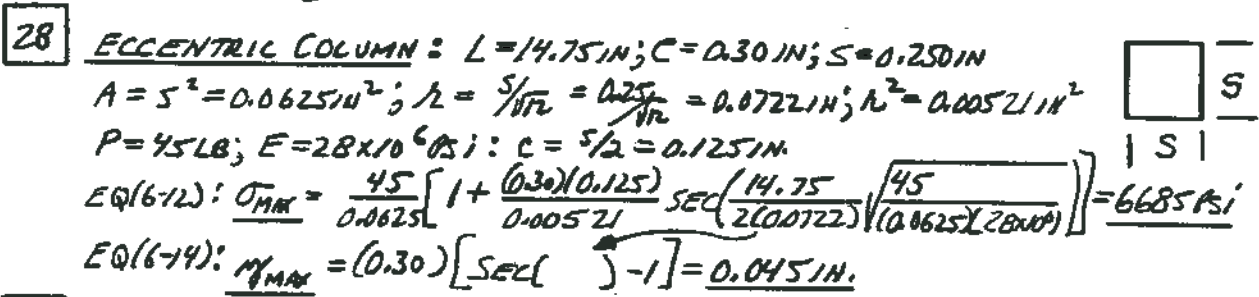 28 ECCENTRIC COLUMN: L = 14.75 IN; e = 0.30 IN; S = 0.250 IN
A = S² = 0.0625 IN²; r = S/√12 = 0.25/√12 = 0.0722 IN; r² = 0.00521 IN²
S
P = 45 LB; E = 28 x 10⁶ PSi: c = S/2 = 0.125 IN.
| S |
EQ(6-12): σMAX = 45/0.0625 [1 + (0.30)(0.125)/0.00521 SEC(14.75/2(0.0722) √45/(0.0625)(28x10⁶))] = 6685 PSi
EQ(6-14): yMAX = (0.30)[SEC( ) -1] = 0.045 IN.